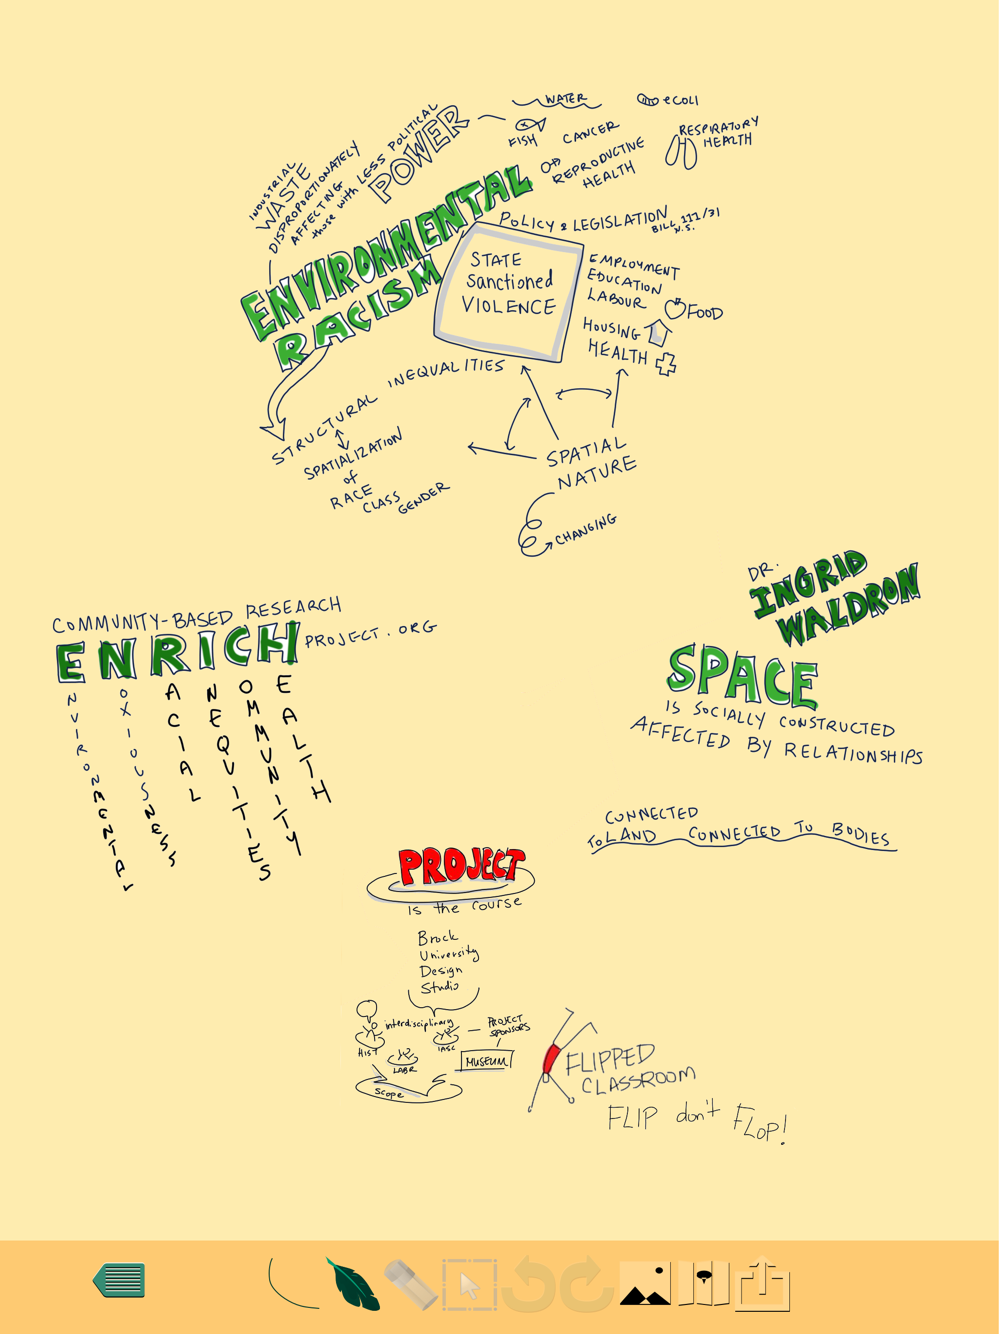 INDUSTRIAL
WASTE
DISPROPORTIONATELY
AFFECTING
those with LESS POLITICAL
POWER
WATER
ecoli
FISH
CANCER
RESPIRATORY
HEALTH
REPRODUCTIVE
HEALTH
ENVIRONMENTAL
RACISM
POLICY & LEGISLATION
BILL 111/31
N.S.
STATE
Sanctioned
VIOLENCE
EMPLOYMENT
EDUCATION
LABOUR
FOOD
HOUSING
HEALTH
STRUCTURAL INEQUALITIES
SPATIALIZATION
of
RACE
CLASS
GENDER
SPATIAL
NATURE
CHANGING
DR.
INGRID
WALDRON
COMMUNITY-BASED RESEARCH
ENRICH PROJECT.ORG
ENVIRONMENTAL
NOXIOUSNESS
RACIAL
INEQUITIES
COMMUNITY
HEALTH
SPACE
IS SOCIALLY CONSTRUCTED
AFFECTED BY RELATIONSHIPS
CONNECTED
TO LAND CONNECTED TO BODIES
PROJECT
is the course
Brock
University
Design
Studio
interdisciplinary
HIST
LABR
IASC
PROJECT
SPONSORS
MUSEUM
Scope
FLIPPED
CLASSROOM
FLIP don't FLOP!